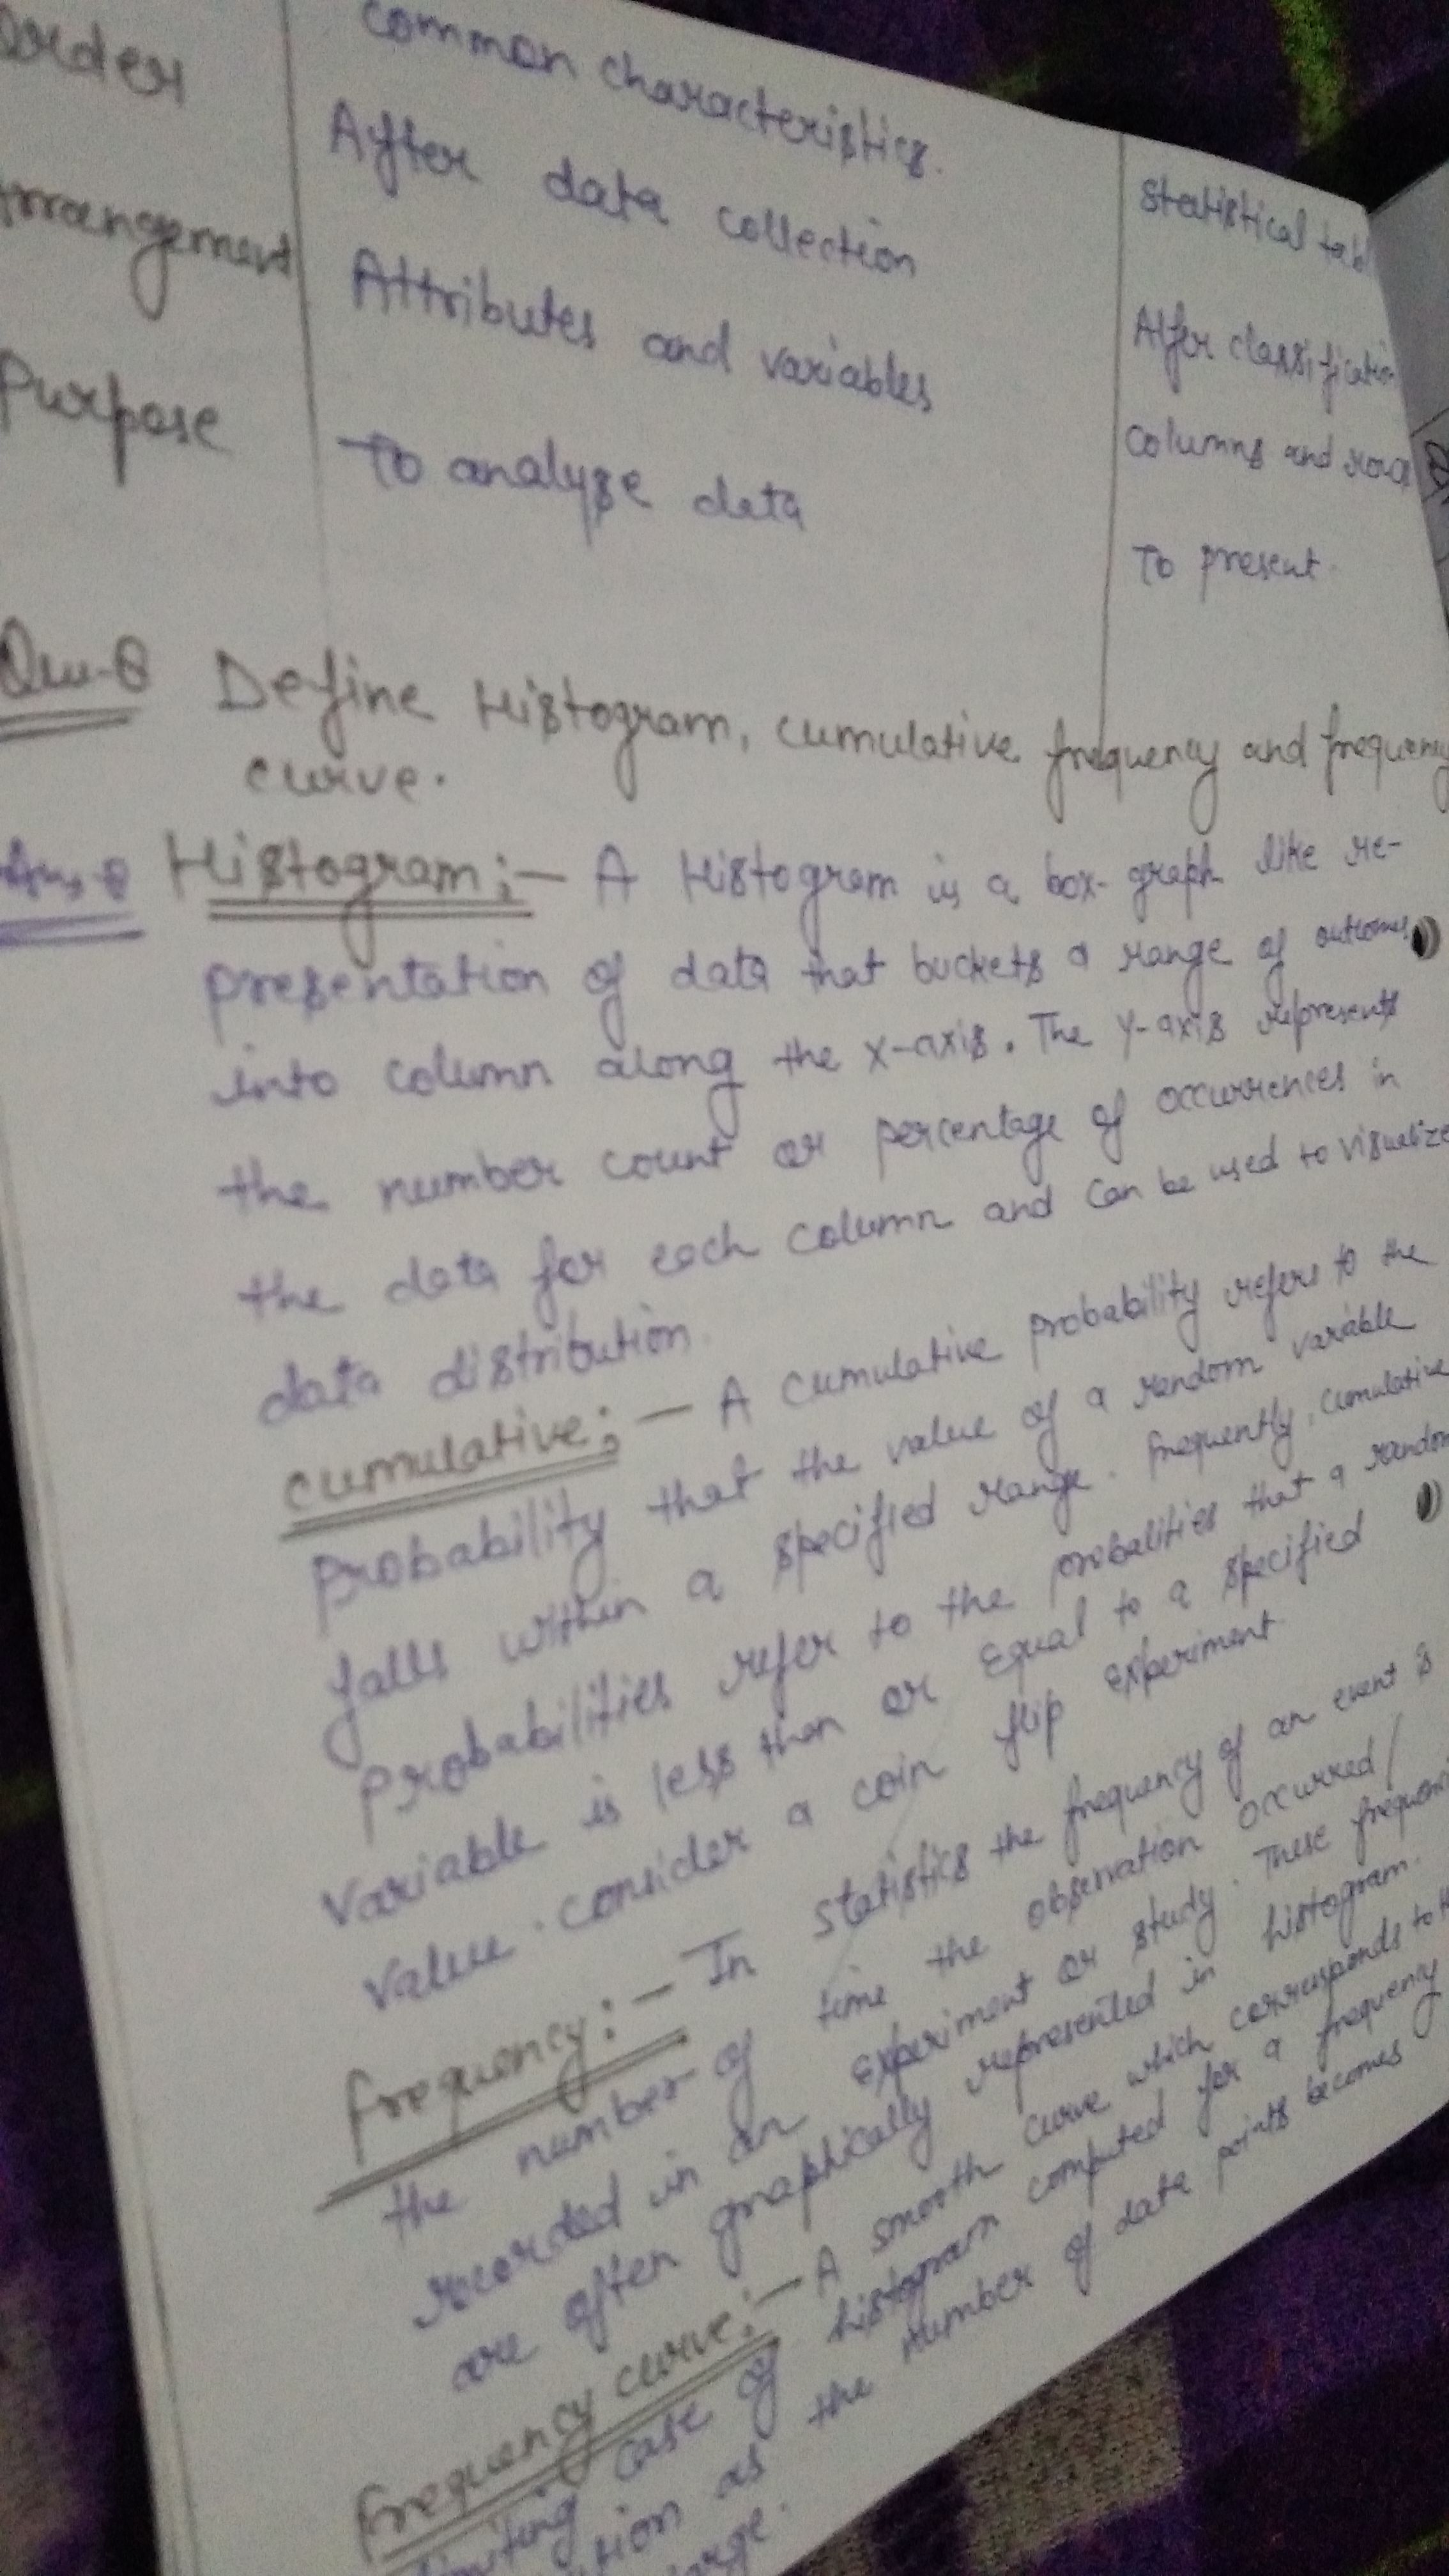 order
common characteristics.
statistical tab
After data collection
Alfer classificatio
rrangement
Attributes and variables
columns and rows
Purpose
To analyze data
To present
Que-8 Define Histogram, cumulative frequency and frequency
curve.
Ans-8 Histogram:- A Histogram is a box-graph like re-
presentation of data that buckets a range of outcomes
into column along the x-axis. The Y-axis represents
the number count or percentage of occurrences in
the data for each column and can be used to visualize
data distribution.
cumulative:- A cumulative probability refers to the
probability that the value of a random variable
falls within a specified range. frequently, cumulative
probabilities refer to the probalities that a random
variable is less than or equal to a specified
value. consider a coin flip experiment.
frequency:- In statistics the frequency of an event is
the number of time the observation occurred/
recorded in an experiment or study. These frequenc
are often graphically represented in histogram.
frequency curve:- A smooth curve which corresponds to th
limiting case of histogram computed for a frequency
tion as the number of data points becomes
arge.